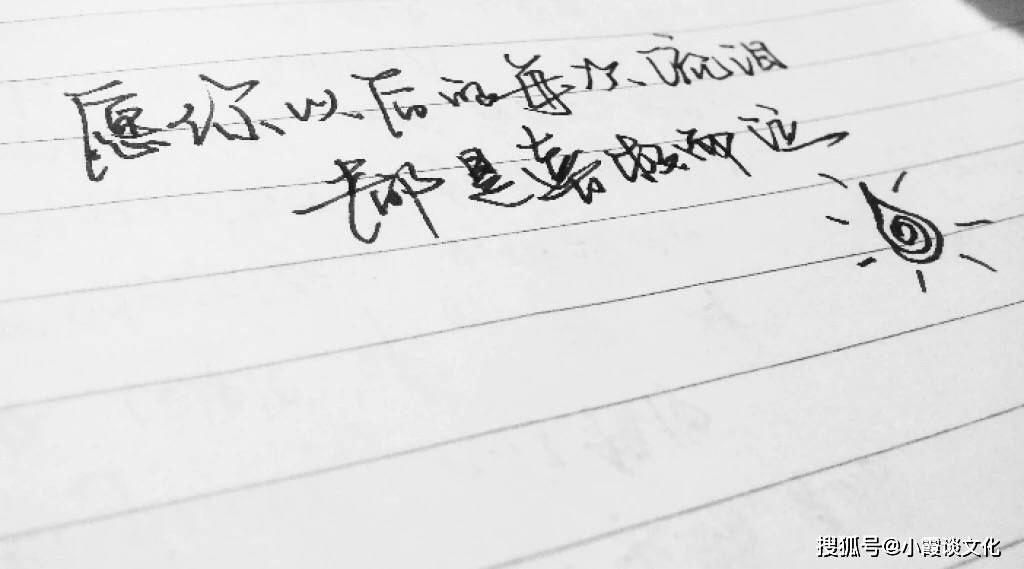 愿你以后的每次流泪
都是喜极而泣
搜狐号@小霞谈文化